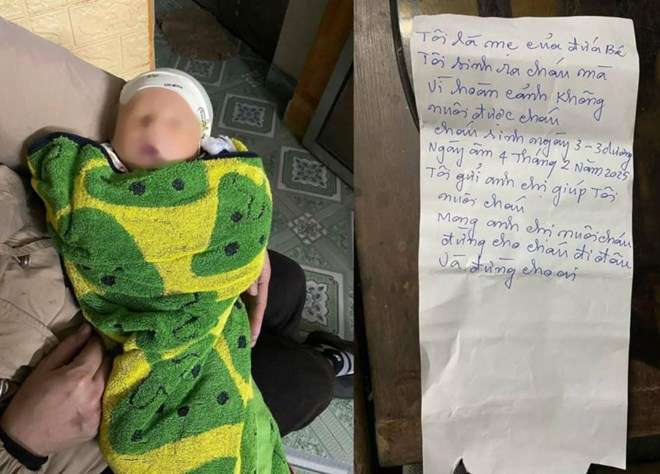 Tôi là mẹ của đứa Bé
Tôi sinh ra cháu mà
Vì hoàn cảnh Không
nuôi được cháu
cháu sinh ngày 3-3 dương
Ngày âm 4 Tháng 2 Năm 2025
Tôi gửi anh chị giup Tôi
nuôi cháu
Mong anh chị nuôi cháu
đừng cho cháu đi đâu
Và đừng cho ai